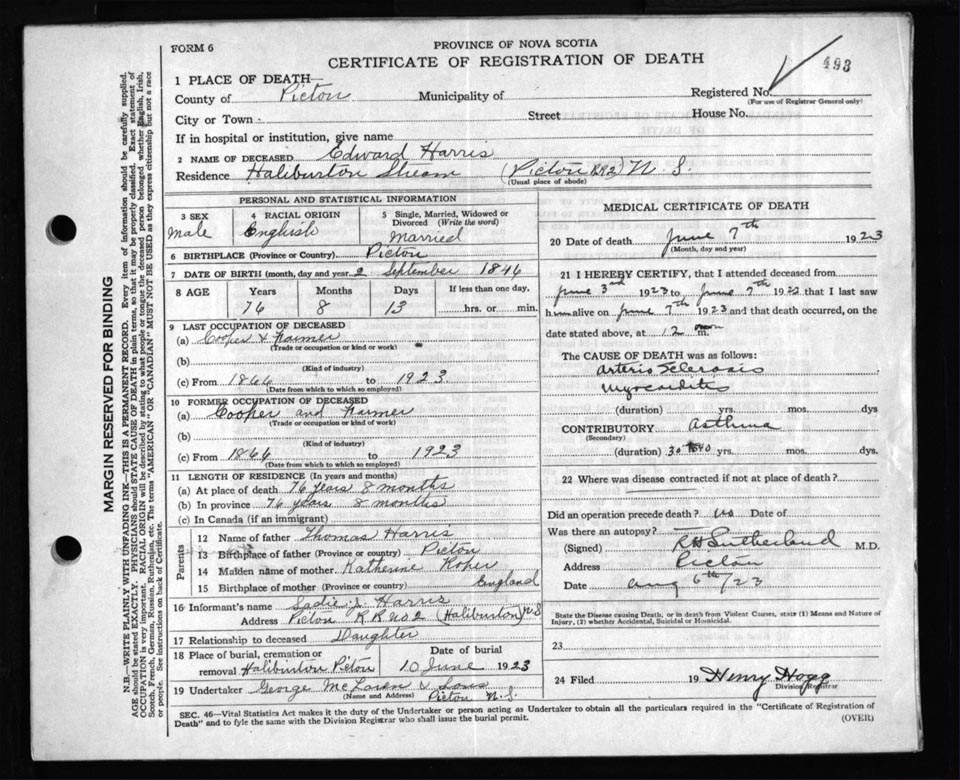 FORM 6
PROVINCE OF NOVA SCOTIA
CERTIFICATE OF REGISTRATION OF DEATH
493
1 PLACE OF DEATH—
Registered No.
(For use of Registrar General only)
County of Pictou Municipality of
City or Town Street House No.
If in hospital or institution, give name
2 NAME OF DECEASED Edward Harris
Residence Haliburton Stream (Pictou RR2) N. S.
(Usual place of abode)
PERSONAL AND STATISTICAL INFORMATION
3 SEX
Male
4 RACIAL ORIGIN
English
5 Single, Married, Widowed or Divorced (Write the word)
Married
6 BIRTHPLACE (Province or Country) Pictou
7 DATE OF BIRTH (month, day and year) 2 September 1846
8 AGE Years Months Days If less than one day,
76 8 13 hrs. or min.
9 LAST OCCUPATION OF DECEASED
(a) Cooper & Farmer
(Trade or occupation or kind of work)
(b)
(Kind of industry)
(c) From 1866 to 1923
(Date from which to which so employed)
10 FORMER OCCUPATION OF DECEASED
(a) Cooper and Farmer
(Trade or occupation or kind of work)
(b)
(Kind of industry)
(c) From 1866 to 1923
(Date from which to which so employed)
11 LENGTH OF RESIDENCE (In years and months)
(a) At place of death 76 years 8 months
(b) In province 76 years 8 months
(c) In Canada (if an immigrant)
Parents
12 Name of father Thomas Harris
13 Birthplace of father (Province or country) Pictou
14 Maiden name of mother Katherine Roper
15 Birthplace of mother (Province or country) England
16 Informant's name Sadie J. Harris
Address Pictou R R No 2 (Haliburton) N.S
17 Relationship to deceased Daughter
18 Place of burial, cremation or removal Haliburton Pictou
Date of burial
10 June 1923
19 Undertaker George McLaren & Sons
(Name and Address) Pictou N. S.
MEDICAL CERTIFICATE OF DEATH
20 Date of death June 7th 1923
(Month, day and year)
21 I HEREBY CERTIFY, that I attended deceased from
June 3rd 1923 to June 7th 1923 that I last saw
him alive on June 7th 1923 and that death occurred, on the
date stated above, at 12 m
The CAUSE OF DEATH was as follows:
Arterio Sclerosis
Myocarditis
(duration) yrs. mos. dys
CONTRIBUTORY Asthma
(Secondary)
(duration) 30 to 40 yrs. mos. dys.
22 Where was disease contracted if not at place of death?
Did an operation precede death? No Date of
Was there an autopsy?
(Signed) Sutherland M.D.
Address Pictou
Date Aug 6th/23
State the Disease causing Death, or in death from Violent Causes, state (1) Means and Nature of
Injury, (2) whether Accidental, Suicidal or Homicidal.
23
24 Filed 19 Henry Hogg
Division Registrar
SEC. 46—Vital Statistics Act makes it the duty of the Undertaker or person acting as Undertaker to obtain all the particulars required in the "Certificate of Registration of
Death" and to fyle the same with the Division Registrar who shall issue the burial permit.
(OVER)
MARGIN RESERVED FOR BINDING
N.B.—WRITE PLAINLY WITH UNFADING INK—THIS IS A PERMANENT RECORD. Every item of information should be carefully supplied.
AGE should be stated EXACTLY. PHYSICIANS should STATE CAUSE OF DEATH in plain terms, so that it may be properly classified. Exact statement of
OCCUPATION is very important. RACIAL ORIGIN will be described by stating to what people or tongue the deceased person belonged whether English, Irish,
Scotch, French, German, Russian, Ruthenian, etc. The terms "AMERICAN" OR "CANADIAN" MUST NOT BE USED as they express citizenship but not a race
or people. See instructions on back of Certificate.